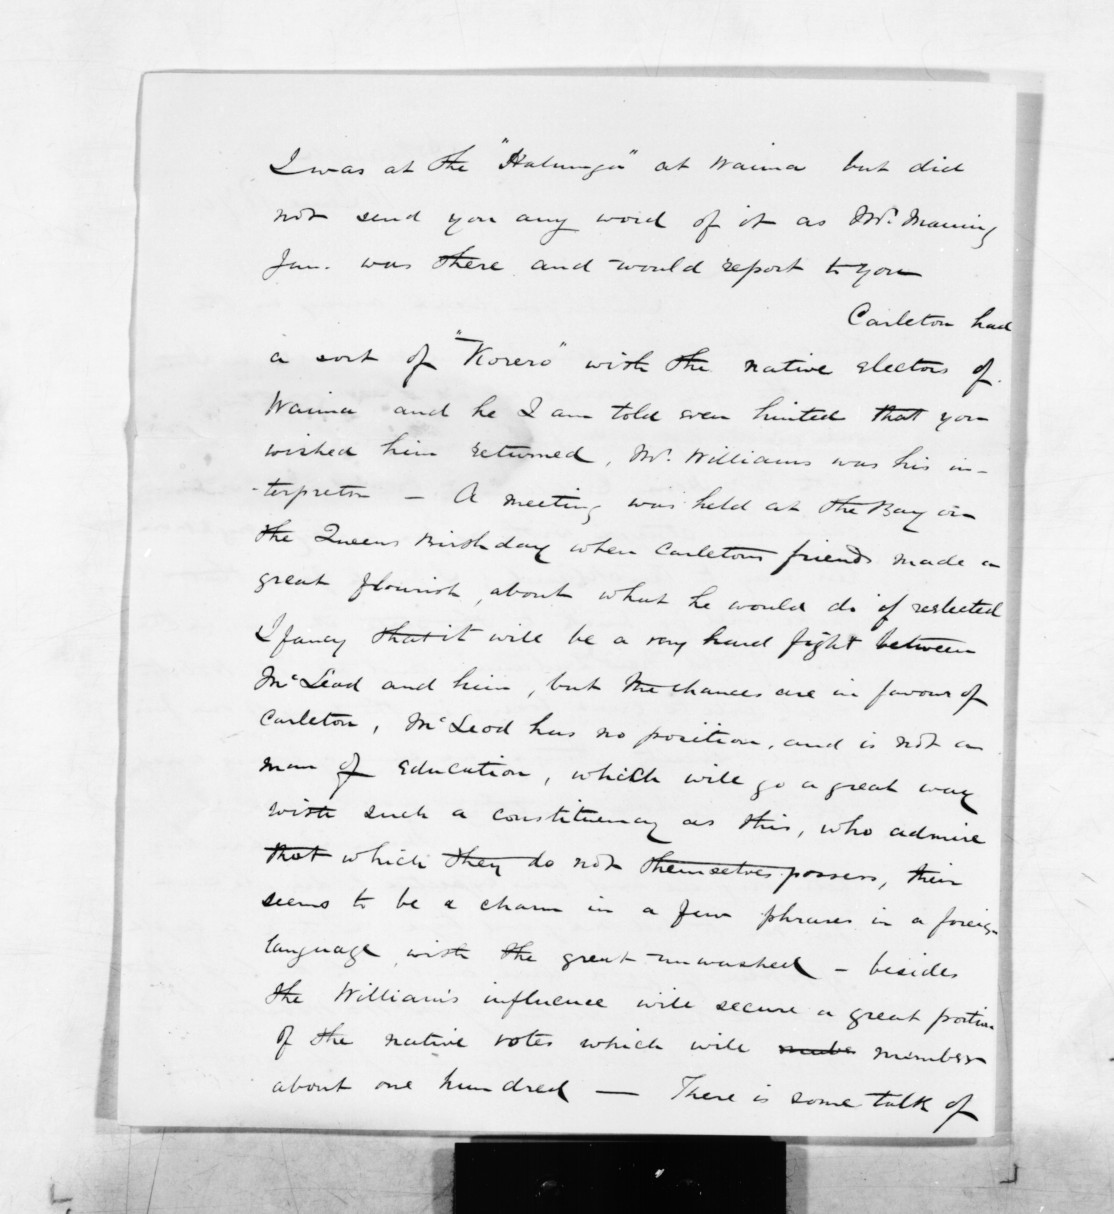 I was at the "Hahunga" at Waima but did
not send you any word of it as Mr. Maning
Jun. was there and would report to you
Carleton had
a sort of "Korero" with the native electors of
Waima and he I am told even hinted that you
wished him returned, Mr. Williams was his in-
-terpreter - A meeting was held at the Bay on
the Queens Birthday when Carletons friends made a
great flourish, about what he would do if reelected
I fancy that it will be a very hard fight between
McLeod and him, but the chances are in favour of
Carleton, McLeod has no position, and is not a
man of education, which will go a great way
with such a constituency as this, who admire
that which they do not themselves possess, their
seems to be a charm in a few phrases in a foreign
language with the great unwashed - besides
the William's influence will secure a great portion
of the native votes which will number
about one hundred — There is some talk of